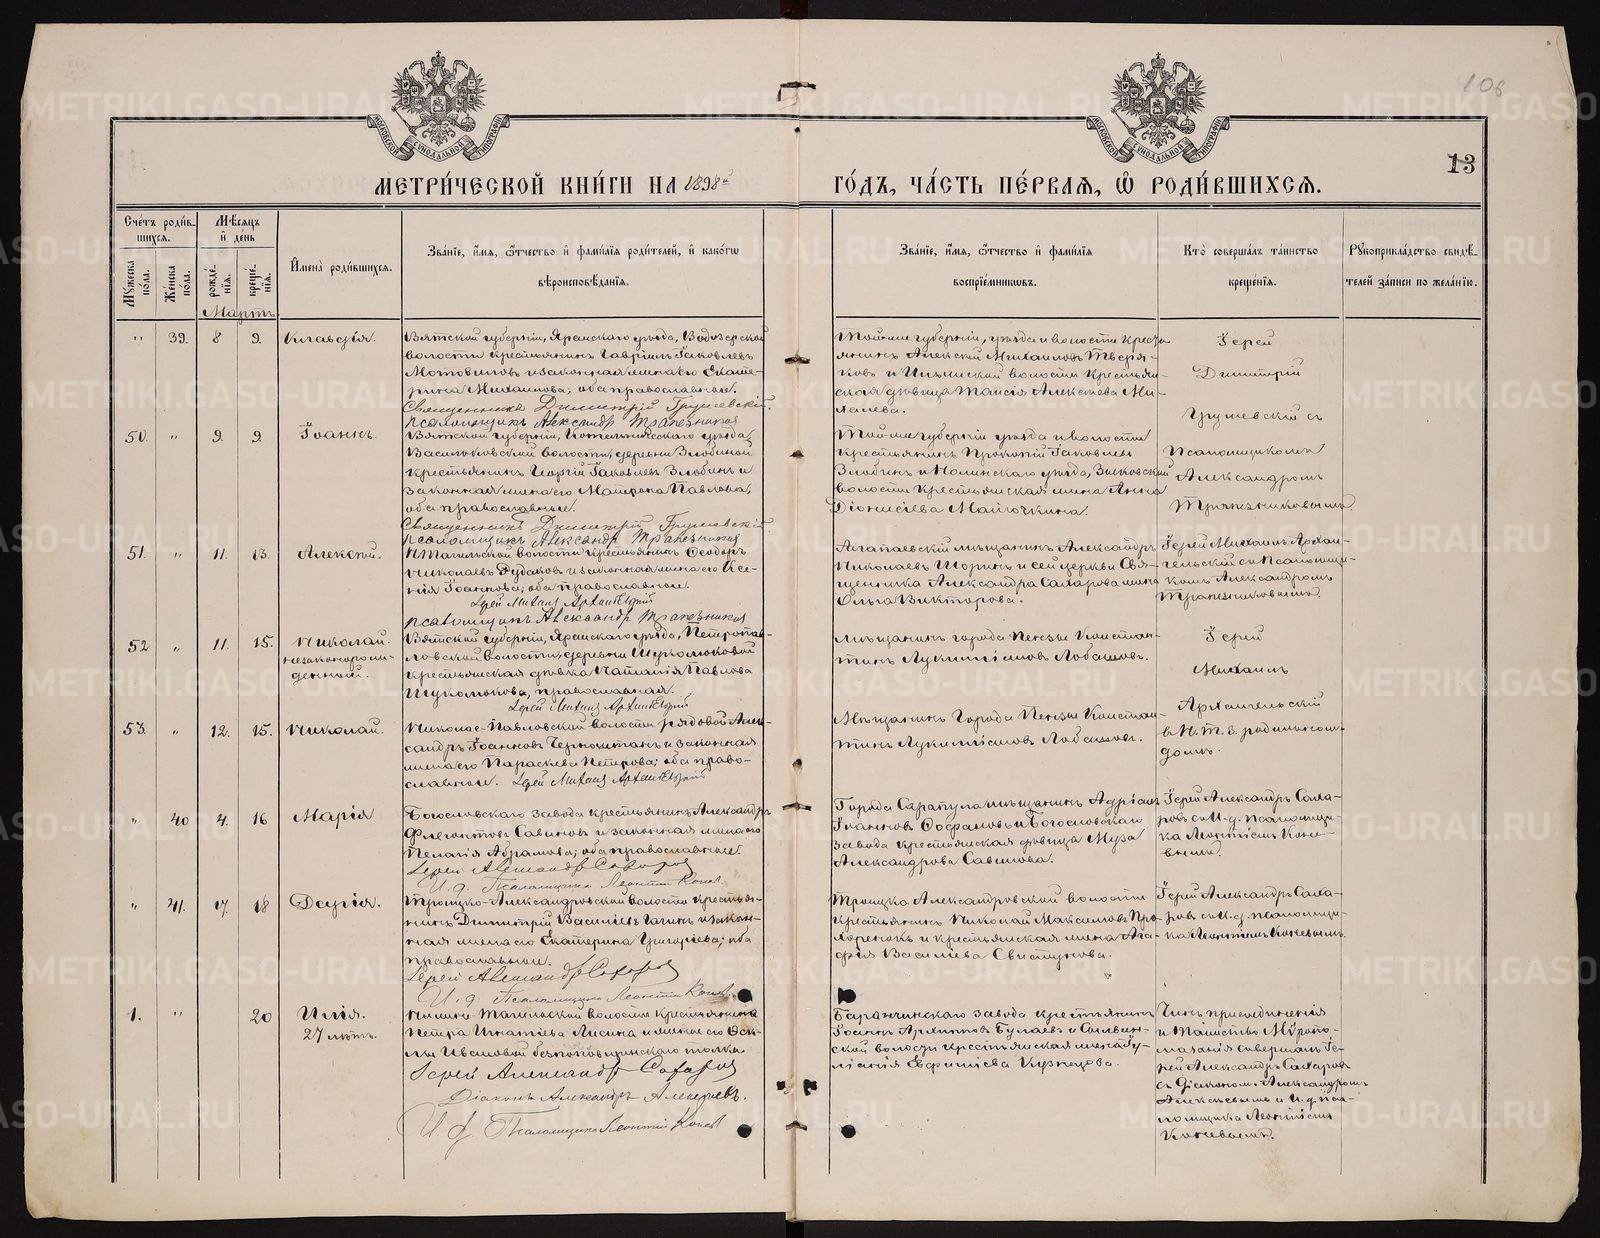 108
13
МЕТРИ́ЧЕСКОЙ КНИ́ГИ НА 1898й
ГО́ДЪ, ЧА́СТЬ ПЕ́РВАЯ, Ѿ РОДИ́ВШИХСЯ.
Сче́тъ роди́в-
шихся.
Мѣсяцъ
и҆ де́нь
Му́жеска по́ла.
Же́нска по́ла.
рожде́-
нія.
креще́-
нія.
И҆мена̀ роди́вшихся.
Зва́ніе, и҆́мя, ѻ҆́тчество и҆ фами́лія роди́телей, и҆ како́гѡ
вѣроисповѣ́данія.
Зва́ніе, и҆́мя, ѻ҆́тчество и҆ фами́лія
воспріе́мниковъ.
Кто̀ соверша́лъ та́инство
креще́нія.
Рꙋкоприкла́дство свидѣ́-
телей за́писи по жела́нію.
Мартъ
" 39. 8 9. Клавдія.
Вятской губерніи, Яранскаго уѣзда, Водозерской
волости крестьянинъ Гавріилъ Іаковлевъ
Мотовиловъ и законная жена его Екате-
рина Михаилова; оба православные.
Священникъ Димитрій Грушевскій.
Псаломщикъ Александр Трапезников
Той же губерніи, уѣзда и волости кресть-
янинъ Алексій Михаиловъ Тверя-
ковъ и Ильинской волости крестьян-
ская дѣвица Таисія Алексѣева Ми-
халева.
Іерей
Димитрій
Грушевскій съ
50. " 9. 9. Іоаннъ.
Вятской губерніи, Котельническаго уѣзда,
Васильковской волости, деревни Злобиной
крестьянинъ Георгій Іаковлевъ Злобинъ и
законная жена его Матрона Павлова,
оба православные.
Священникъ Димитрій Грушевскій
Псаломщикъ Александр Трапезников
Той же губерніи уѣзда и волости
крестьянинъ Прокопій Іаковлевъ
Злобинъ и Нолинскаго уѣзда, Зыковской
волости крестьянская жена Анна
Діонисіева Малочкина.
Псаломщикомъ
Александромъ
Трапезниковымъ.
51. " 11. 13. Алексій.
Н Тагильской волости крестьянинъ Ѳеодоръ
Николаевъ Рудаковъ и законная жена его Ксе-
нія Іоаннова; оба православные.
Іерей Михаил Архангельскій
Псаломщикъ Александр Трапезников
Алапаевскій мѣщанинъ Александръ
Николаевъ Шоринъ и сей церкви Свя-
щенника Александра Сахарова жена
Ольга Викторова.
Іерей Михаилъ Архан-
гельскій съ Псаломщи-
комъ Александромъ
Трапезниковымъ.
52 " 11. 15. Николай.
незаконорож-
денный.
Вятской губерніи, Яранскаго уѣзда, Петропав-
ловской волости, деревни Шукомоковой
крестьянская дѣвка Наталія Павлова
Шукомокова, православная.
Іерей Михаил Архангельскій
Мѣщанинъ города Пензы Констан-
тинъ Лукиллановъ Лобашовъ.
Іерей
Михаилъ
Архангельскій
53. " 12. 15. Николай.
Николае-Павловской волости рядовой Алек-
сандръ Іоанновъ Черноштанъ и законная
жена его Параскева Петрова; оба право-
славные. Іерей Михаил Архангельскій
Мѣщанинъ Города Пензы Констан-
тинъ Лукиллановъ Лобашовъ.
в Н. Т. З. родильном
домѣ.
" 40 4. 16 Марія
Богословскаго завода крестьянинъ Александръ
Флегонтовъ Савиновъ и законная жена его
Пелагія Абрамова; оба православные.
Іерей Александр Сахаров
И. д. Псаломщика Леонтій Конев
Города Сарапула мѣщанинъ Адріанъ
Іоанновъ Ѳофановъ и Богословскаго
завода крестьянская дѣвица Муза
Александрова Савинова.
Іерей Александръ Саха-
ровъ съ И. д. псаломщи-
ка Леонтіемъ Коне-
вымъ.
" 41. 17. 18 Дарія.
Троицко-Александровской волости крестья-
нинъ Димитрій Василіевъ Чагинъ и закон-
ная жена его Екатерина Григоріева; оба
православные.
Іерей Александр Сахаров
И. д. Псаломщика Леонтій Конев
Троицко Александровской волости
крестьянинъ Николай Максимовъ Про-
хоренокъ и крестьянская жена Ага-
фія Василіева Свистунова.
Іерей Александръ Саха-
ровъ съ И. д. псаломщи-
ка Леонтіемъ Коневымъ.
1. " 20 Илія.
27 лѣтъ.
Нижне-Тагильской волости крестьянина
Петра Игнатіева Лисина и жены его Ѳек-
лы Ивановой безпоповщинскаго толка.
Іерей Александр Сахаров
Діаконъ Александръ Алексѣевъ.
И. д. Псаломщика Леонтій Конев
Баранчинскаго завода крестьянинъ
Іоаннъ Архиповъ Булаевъ и
ской волости крестьянская жена Іу-
ліанія Евфиміева Кузнецова.
Чинъ присоединенія
и Таинство Мѵропо-
мазанія совершалъ Іе-
рей Александръ Сахаровъ
съ Діакономъ Александромъ
Алексѣевымъ и И. д. пса-
ломщика Леонтіемъ
Коневымъ.